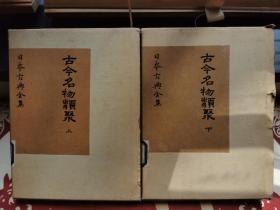 古今名物類聚 上
日本古典全集
古今名物類聚 下
日本古典全集